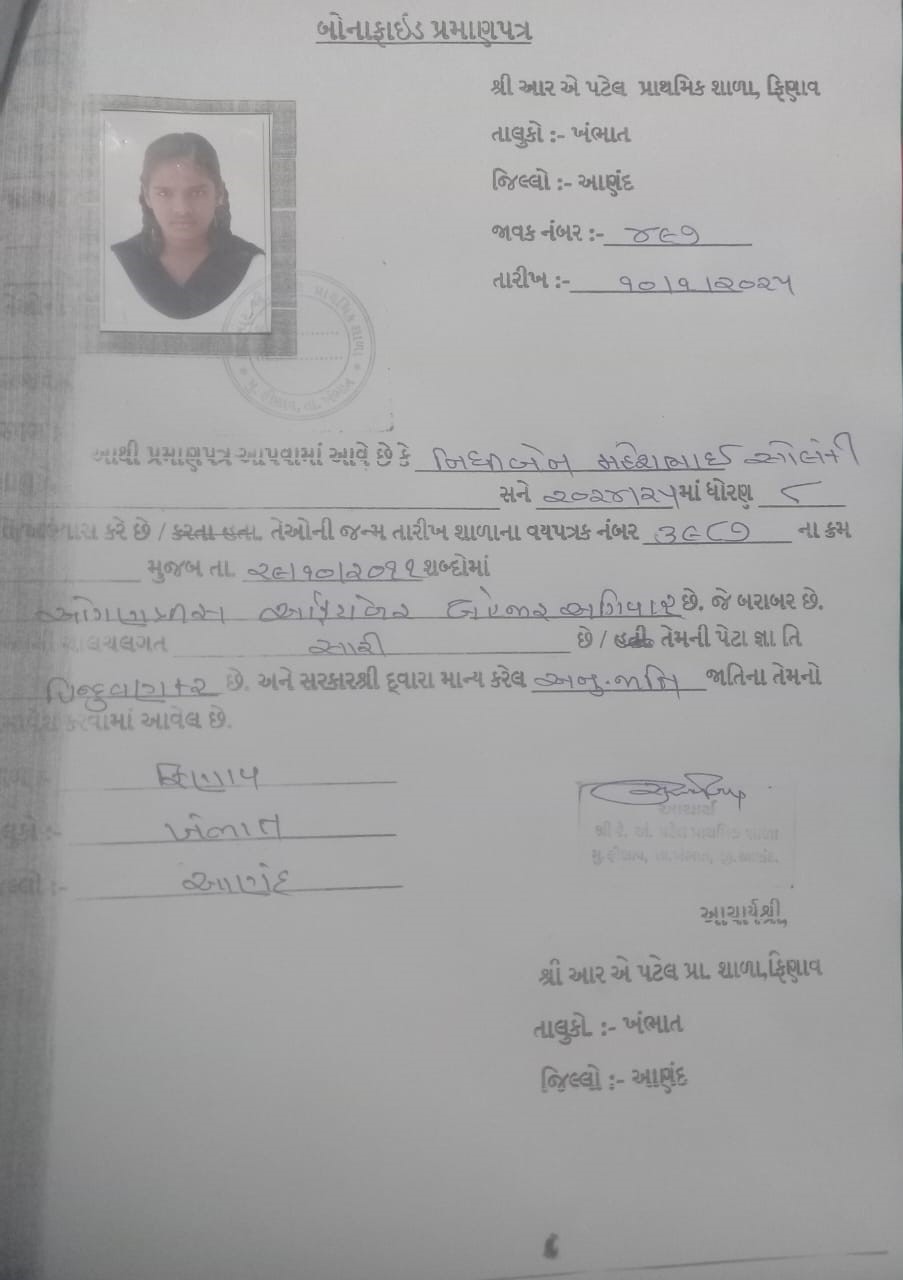 બોનાફાઈડ પ્રમાણપત્ર
શ્રી આર એ પટેલ પ્રાથમિક શાળા, ફિણાવ
તાલુકો :- ખંભાત
જિલ્લો :- આણંદ
જાવક નંબર :- ૪૯૭
તારીખ :- ૧૦/૧/૨૦૨૫
આથી પ્રમાણપત્ર આપવામાં આવે છે કે નિધીબેન મહેશભાઈ સોલંકી
સને ૨૦૨૪/૨૫માં ધોરણ ૮
કરે છે / કરતા હતા. તેઓની જન્મ તારીખ શાળાના વયપત્રક નંબર ૩૯૮૭ ના ક્રમ
મુજબ તા. ૨૯/૧૦/૨૦૧૧ શબ્દોમાં
ઓગણત્રીસ ઓક્ટોબર બે હજાર અગિયાર છે. જે બરાબર છે.
ચાલચલગત સારી છે / હતી. તેમની પેટા જ્ઞાતિ
હિન્દુવણકર છે. અને સરકારશ્રી દ્વારા માન્ય કરેલ અનુ.જાતિ જાતિના તેમનો
કરવામાં આવેલ છે.
ફિણાવ
ખંભાત
આણંદ
આચાર્ય
શ્રી પટેલ પ્રાથમિક શાળા
આચાર્યશ્રી
શ્રી આર એ પટેલ પ્રા. શાળા,ફિણાવ
તાલુકો. :- ખંભાત
જિલ્લો :- આણંદ